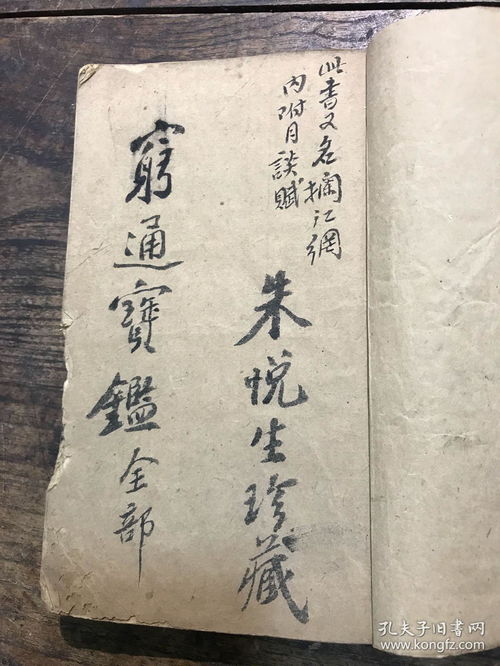 此書又名攔江網
內附月談賦
朱悅生珍藏
窮通寶鑑全部
孔夫子旧书网
www.kongfz.com